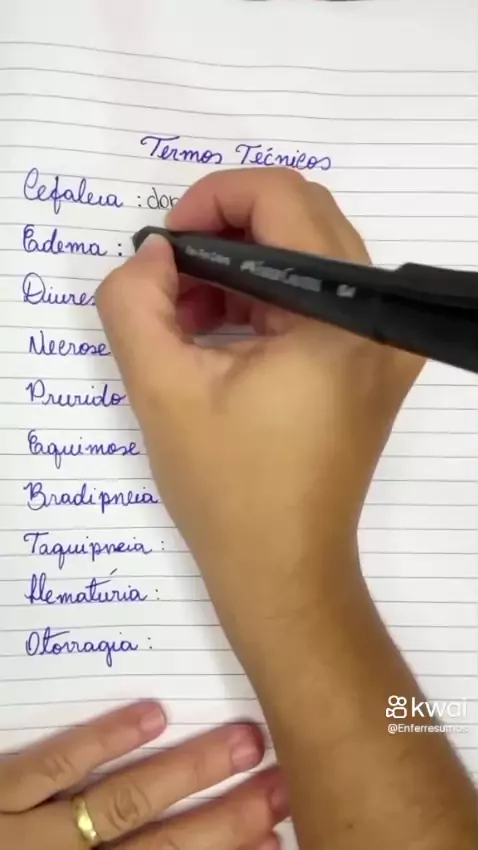 Termos Técnicos
Cefaleia : dor
Edema :
Diures
Necrose
Prurido
Equimose
Bradipneia
Taquipneia :
Hematúria :
Otorragia :
kwai
@Enferresumos